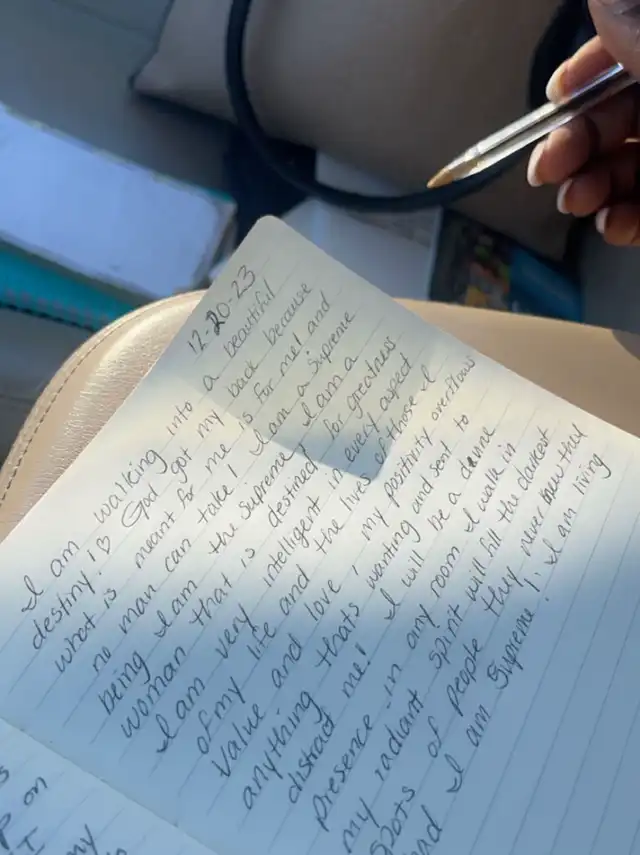 12-20-23
I am walking into a beautiful
destiny! ♡ God got my back because
what is meant for me is for me! and
no man can take! I am a Supreme
being I am the Supreme, I am a
woman that is destined for greatness
I am very intelligent in every aspect
of my life and the lives of those I
value and love, my positivity overflows
anything thats wanting and sent to
distract me! I will be a divine
presence in any room I walk in
my radiant spirit will fill the darkest
spots of people they never knew they
had I am Supreme! I am living
on
I
my